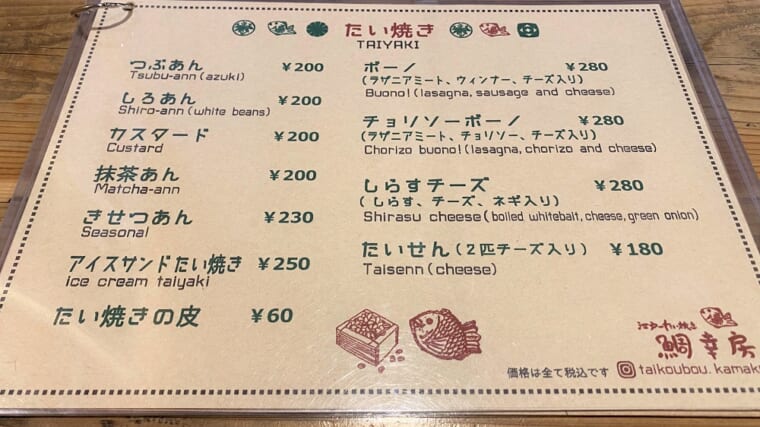 たい焼き
TAIYAKI
つぶあん ¥200
Tsubu-ann(azuki)
しろあん ¥200
Shiro-ann(white beans)
カスタード ¥200
Custard
抹茶あん ¥200
Matcha-ann
きせつあん ¥230
Seasonal
アイスサンドたい焼き ¥250
ice cream taiyaki
たい焼きの皮 ¥60
ボーノ ¥280
(ラザニアミート、ウィンナー、チーズ入り)
Buono!(lasagna, sausage and cheese)
チョリソーボーノ ¥280
(ラザニアミート、チョリソー、チーズ入り)
Chorizo buono!(lasagna, chorizo and cheese)
しらすチーズ ¥280
(しらす、チーズ、ネギ入り)
Shirasu cheese(boiled whitebait, cheese, green onion)
たいせん(2匹チーズ入り) ¥180
Taisenn(cheese)
鯛幸房
価格は全て税込です taikoubou. kamak